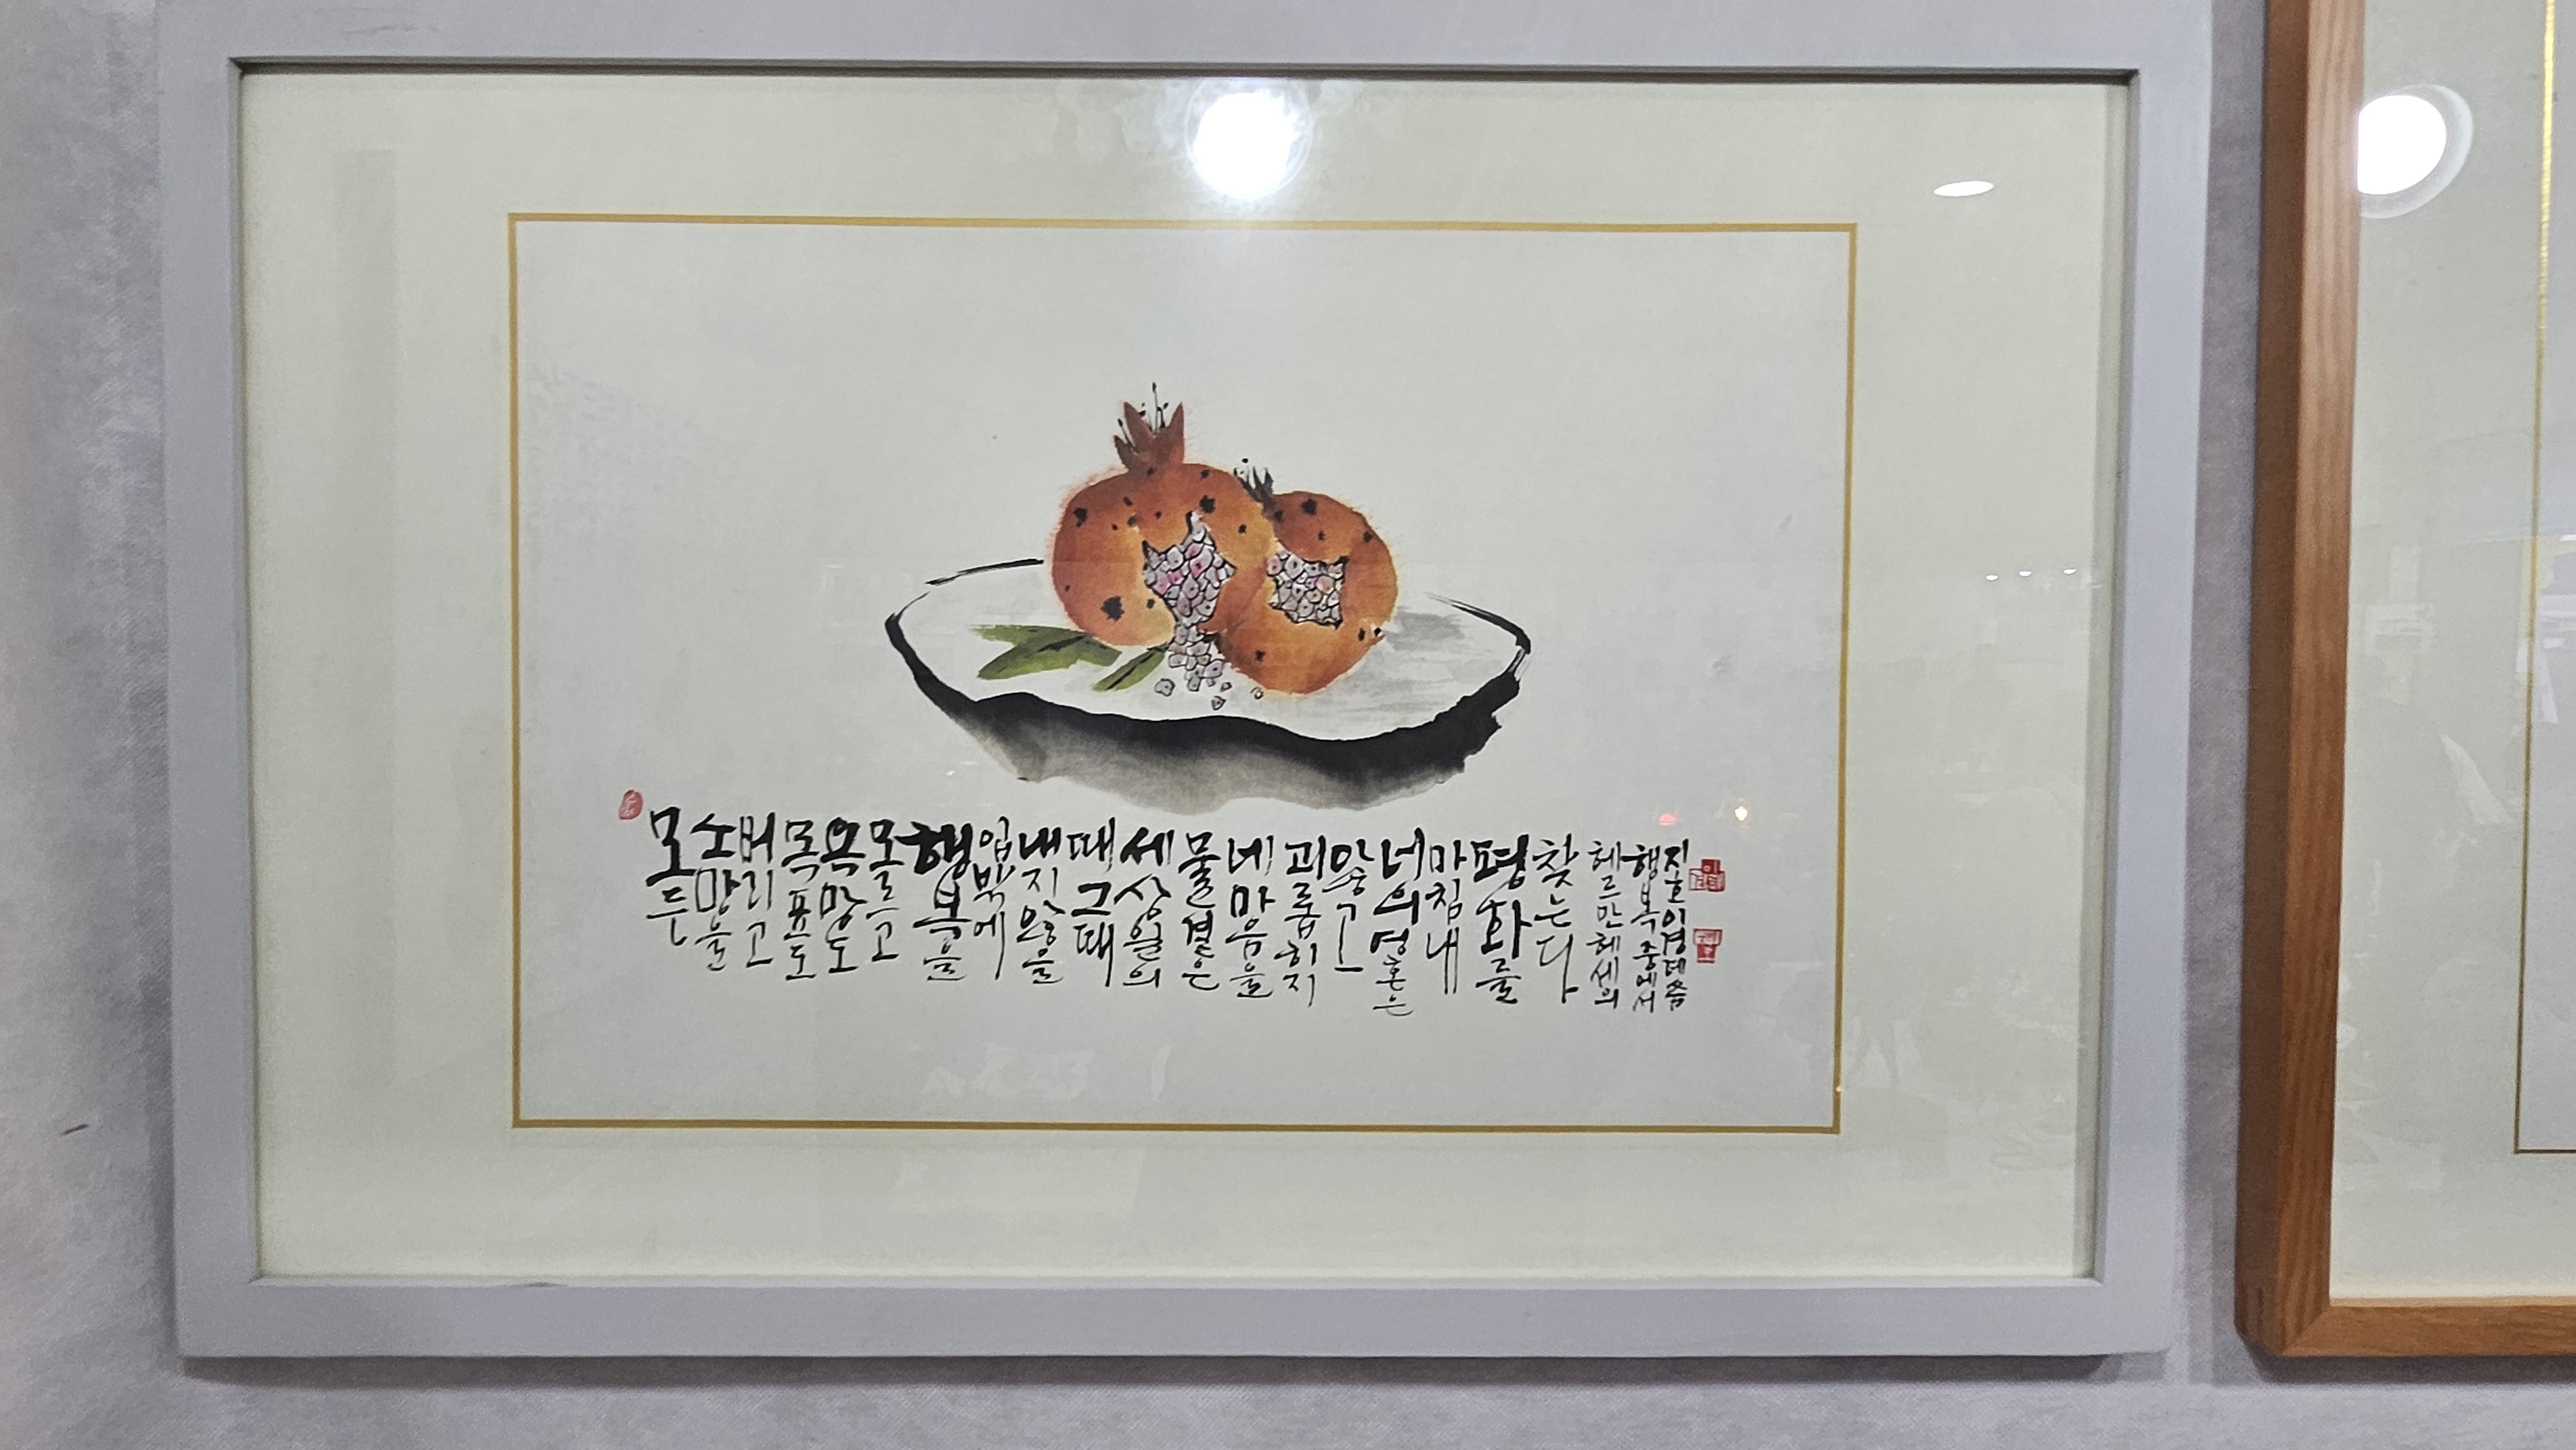 모두
소망을
버리고
목표도
욕망도
모르고
행복을
입밖에
내지 않을
때 그때
세상일의
물결은
네 마음을
괴롭히지
않고
너의 영혼은
마침내
평화를
찾는다
헤르만 헤세의
행복 중에서
지호 이경데 씀